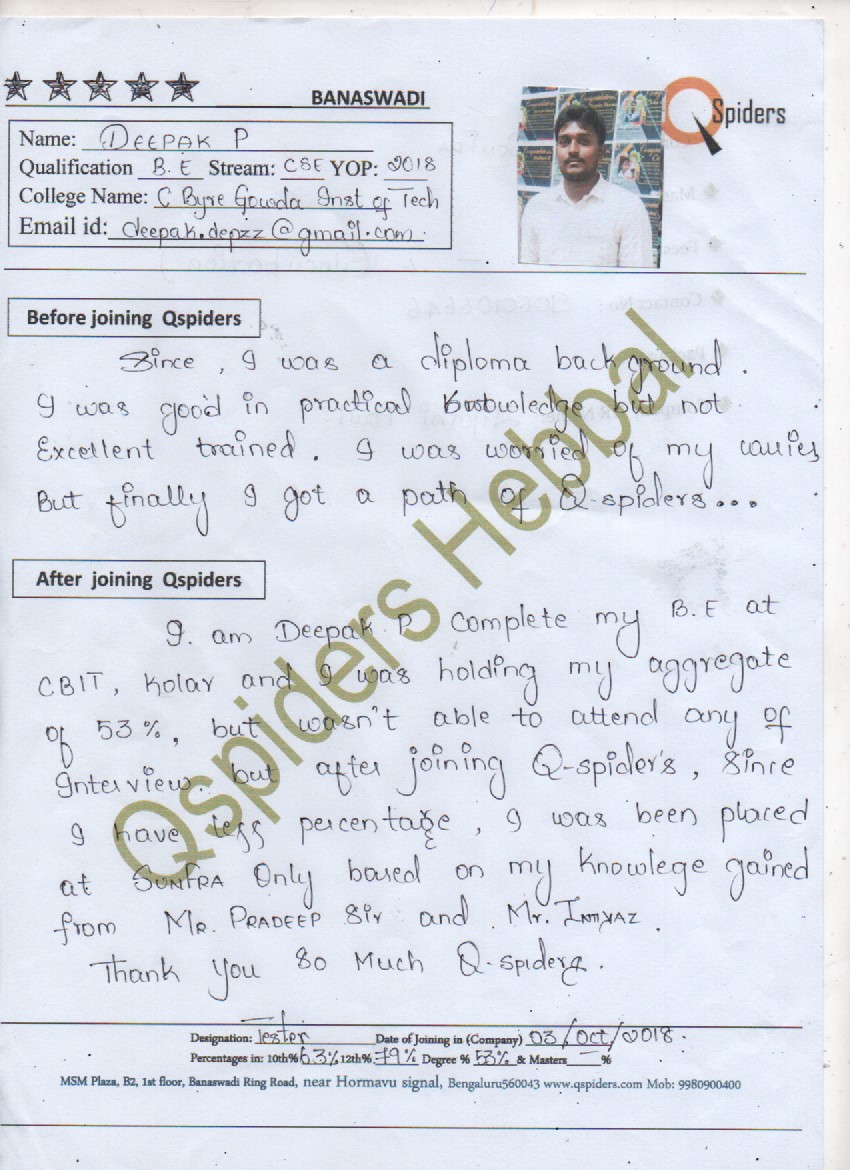 BANASWADI
Spiders
Name: DEEPAK P
Qualification B.E Stream: CSE YOP: 2018
College Name: C Byre Gowda Inst of Tech
Email id: deepak.depzz@gmail.com
Before joining Qspiders
Since, I was a diploma background.
I was good in practical knowledge but not
Excellent trained. I was worried of my
But finally I got a path of Q-spiders...
After joining Qspiders
I. am Deepak P Complete my B.E at
CBIT, Kolar and I was holding my aggregate
of 53%, but wasn't able to attend any of
Interview. but after joining Q-spider's, Since
I have less percentage, I was been placed
at SUNFRA Only based on my Knowlege gained
from MR. PRADEEP Sir and Mr. IMTIYAZ.
Thank You So Much Q-spiders.
Designation: Tester Date of Joining in (Company) 03/Oct/2018.
Percentages in: 10th% 63% 12th% 79% Degree % 53% & Masters — %
MSM Plaza, B2, 1st floor, Banaswadi Ring Road, near Hormavu signal, Bengaluru560043 www.qspiders.com Mob: 9980900400
Qspiders Hebbal